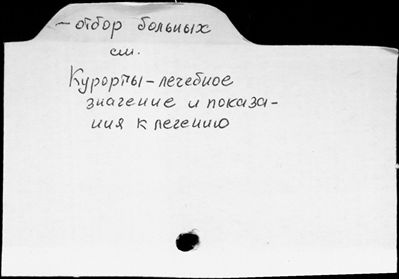 – отбор больных
см.
Курорты – лечебное
значение и показа-
ния к лечению